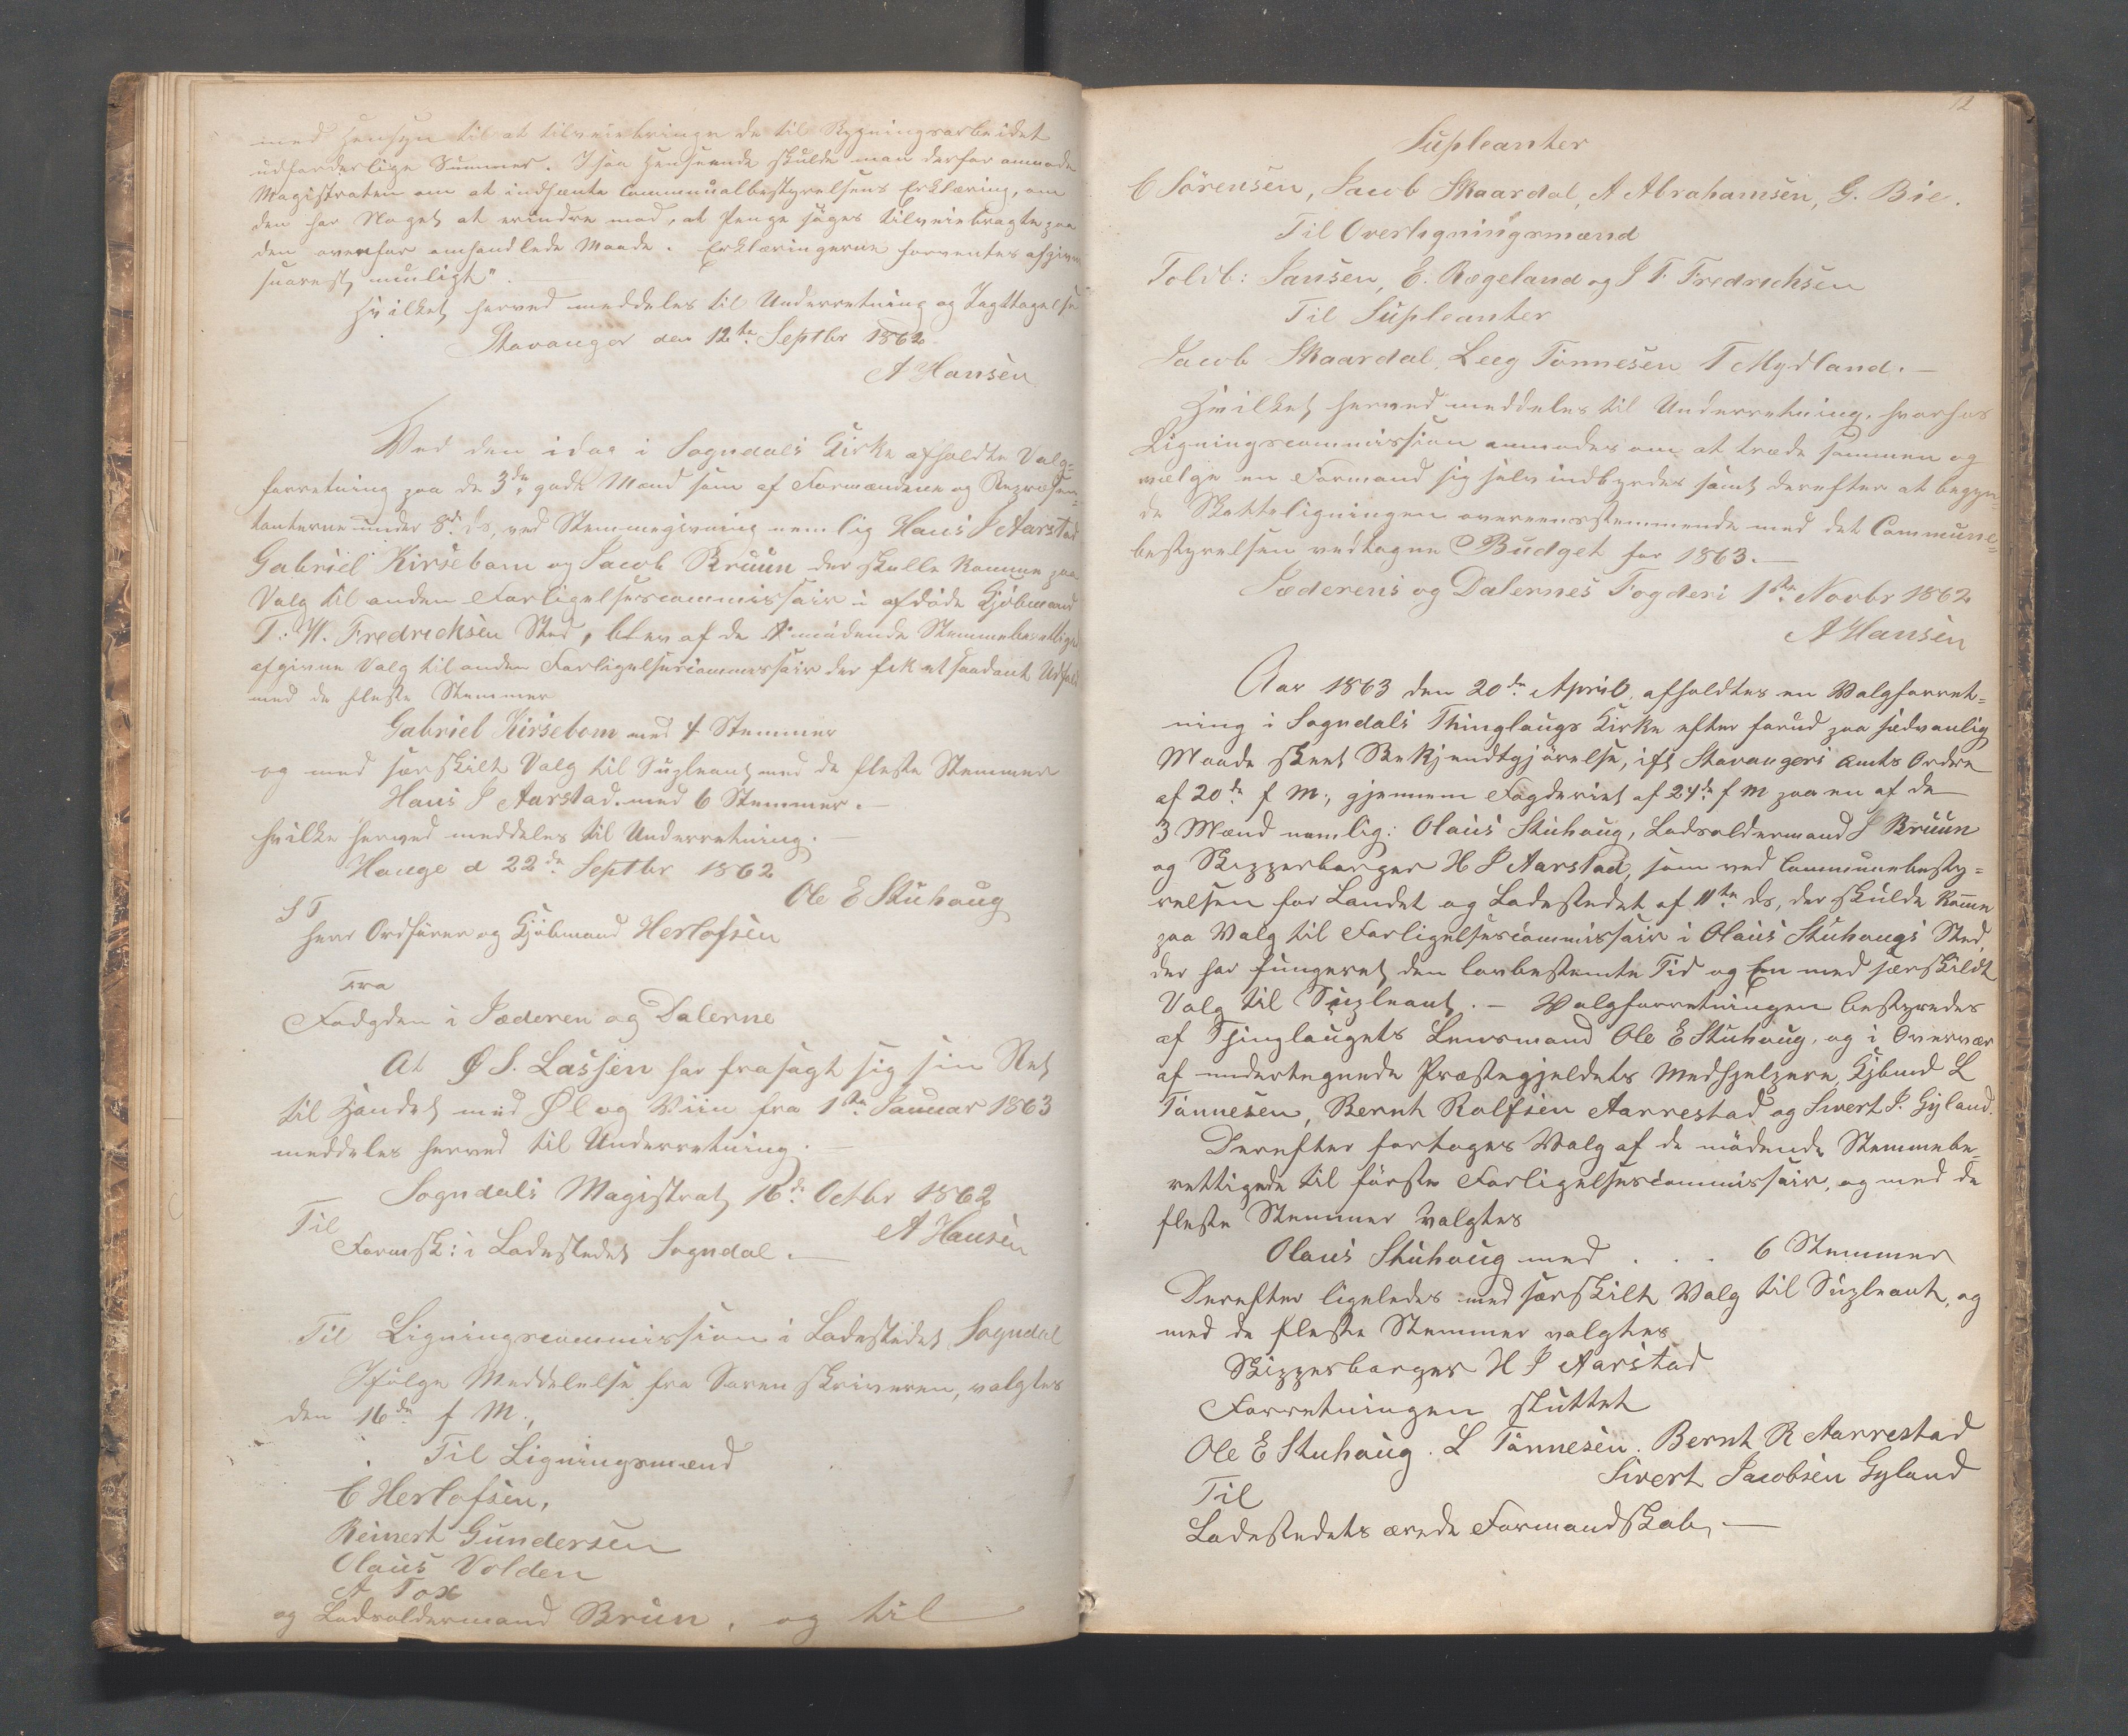 med Hensyn til at tilveiebringe de til Bygningsarbeidet
udforderlige Summer. I saa Henseende skulde man derfor anmode
Magistraten om at indhente Communalbestyrelsens Erklæring, om
den har Noget at erindre mod, at Penge søges tilveiebragte paa
den ovenfor omhandlede Maade. Erklæringerne forventes afgivne
snarest muligt".
Hvilket herved meddeles til Underretning og Iagttagelse
Stavanger den 12te Septbr 1862
A Hansen
Ved den idag i Sogndals Kirke afholdte Valg=
forretning paa de 3de gode Mænd som af Formændene og Repræsen=
tanterne under 8de ds, ved Stemmegivning nemlig Hans P Aarstad
Gabriel Kirsebom og Jacob Bruun der skulle komme paa
Valg til anden Forligelsescommissair i afdøde Kjøbmand
T. W. Fredricksen Sted, blev af de mødende Stemmeberettigede
afgivne Valg til anden Forligelsescommissair der fik et saadant Udfald
med de fleste Stemmer
Gabriel Kirsebom med 4 Stemmer
og med særskilt Valg til Supleant med de fleste Stemmer
Hans P Aarstad med 6 Stemmer.—
hvilke herved meddeles til Underretning.
Hauge d 22de Septbr 1862
Ole E Stuhoug
S T
Herr Ordfører og Kjøbmand Herlofsen
Fra
Fodgden i Jæderen og Dalerne
At Ø S. Lassen har frasagt sig sin Ret
til Handel med Øl og Viin fra 1ste Januar 1863
meddeles herved til Underretning.—
Sogndals Magistrat 16de Octbr 1862
A Hansen
Til
Formsk: i Ladestedet Sogndal.—
Til Ligningscommission i Ladestedet Sogndal
Ifølge Meddelelse fra Sorenskriveren, valgtes
den 16de f M.,
Til Ligningsmænd
C Herlofsen,
Reinert Gundersen
Olaus Volden
A Fox
og Lodsoldermand Brun, og til
12
Supleanter
C Sörensen, Jacob Skaardal, A Abrahamsen, G. Bie.
Til Overligningsmænd
Toldb: Jansen, E. Rægeland og J T. Fredrichsen
Til Supleanter
Jacob Skaardal, Leeg Tönnesen T Mydland.—
Hvilket herved meddeles til Underretning, hvorhos
Ligningscommission anmodes om at træde sammen og
vælge en Formand sig selv indbyrdes samt derefter at begyn=
de Skatteligningen overeensstemmende med det Commune=
bestyrelsen vedtagne Budget for 1863.—
Jæderens og Dalernes Fogderi 1ste Novbr 1862
A Hansen
Aar 1863 den 20de April afholdtes en Valgforret=
ning i Sogndals Thinglaugs Kirke efter forud paa sædvanlig
Maade skeet Bekjendtgjörelse, ifl Stavangers Amts Ordre
af 20de f M., gjennem Fogderiet af 24de f M paa en af de
3 Mænd nemlig: Olaus Stuhoug, Lodsoldermand J Bruun
og Skipperborger H P Aarstad, som ved Communebesty=
relsen for Landet og Ladestedet af 11te ds, der skulde komme
paa Valg til Forligelsescommissair i Olaus Stuhougs Sted,
der har fungeret den lovbestemte Tid og En med særskildt
Valg til Supleant.— Valgforretningen bestyredes
af Thinglaugets Lensmand Ole E Stuhoug, og i Overvær
af undertegnede Præstegjeldets Medhjelpere, Kjbmd L
Tönnesen, Bernt Rolfsen Aarrestad og Sivert J. Gyland.
Derefter fortoges Valg af de mödende Stemmebe=
rettigede til förste Forligelsescommissair, og med de
fleste Stemmer valgtes
Olaus Stuhoug med . . . 6 Stemmer
Derefter ligeledes med særskilt Valg til Supleant, og
med de fleste Stemmer valgtes
Skipperborger H P Aarstad
Forretningen sluttet
Ole E Stuhoug. L Tönnesen. Bernt R Aarrestad
Sivert Jacobsen Gyland
Til
Ladestedets ærede Formandskab.—